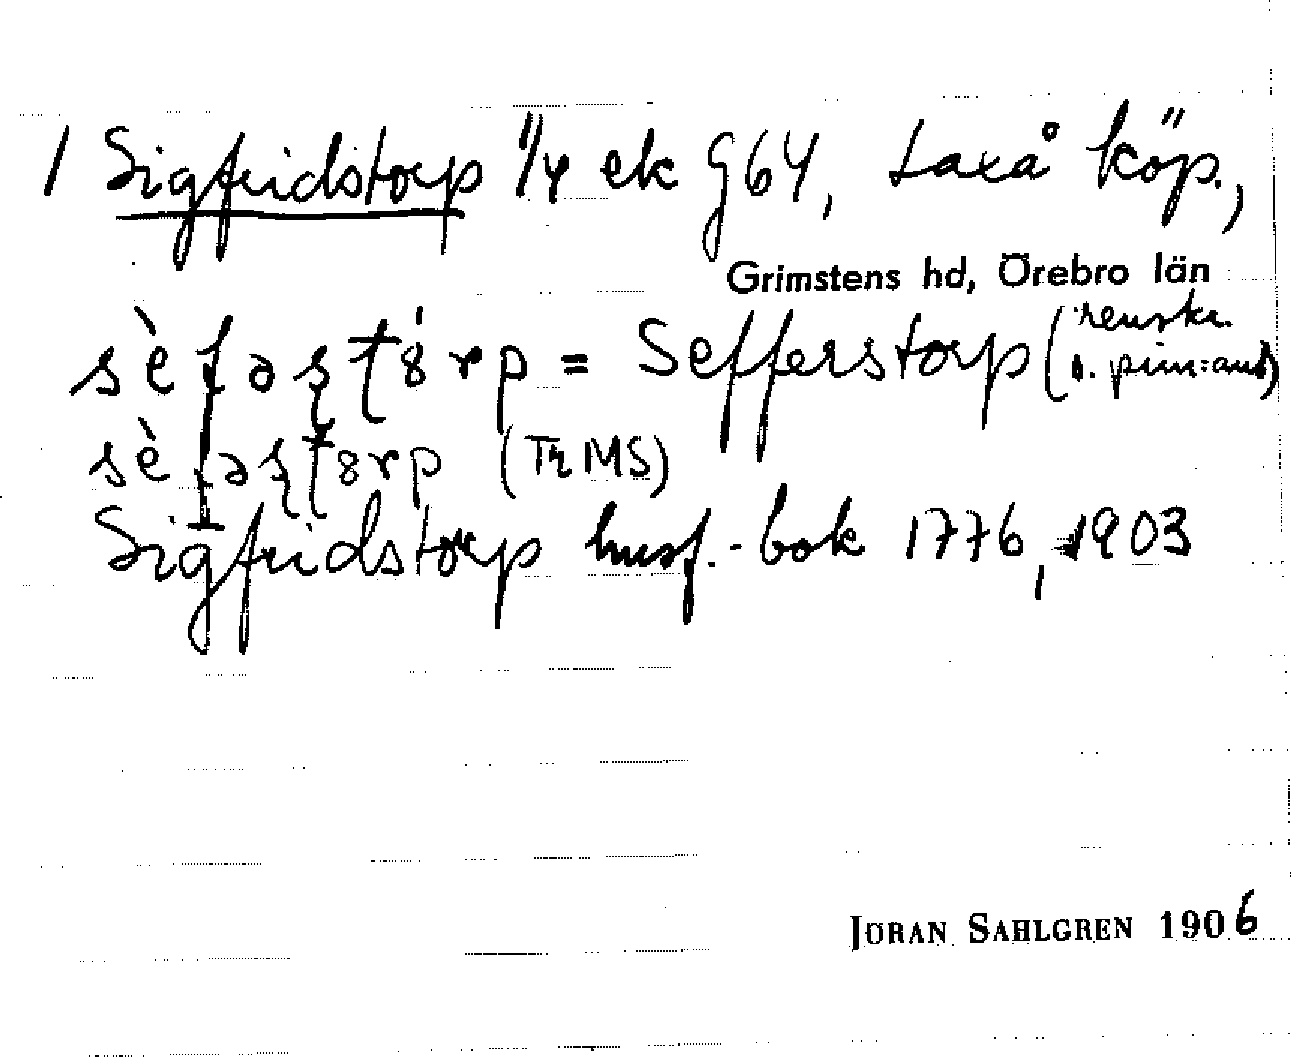 1 Sigfridstorp 1/4 ek G64, Laxå köp.,
Grimstens hd, Örebro län
sèfəşt8́rp = Sefferstorp (renskr.
o. prim:auf)
sèfəşt8rp (Tr MS)
Sigfridstorp husf.-bok 1776, 1903
JÖRAN SAHLGREN 1906